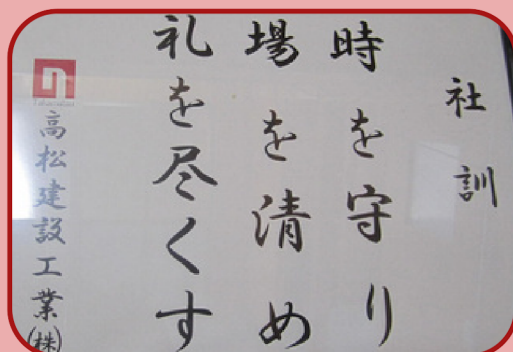 社訓
時を守り
場を清め
礼を尽くす
高松建設工業(株)